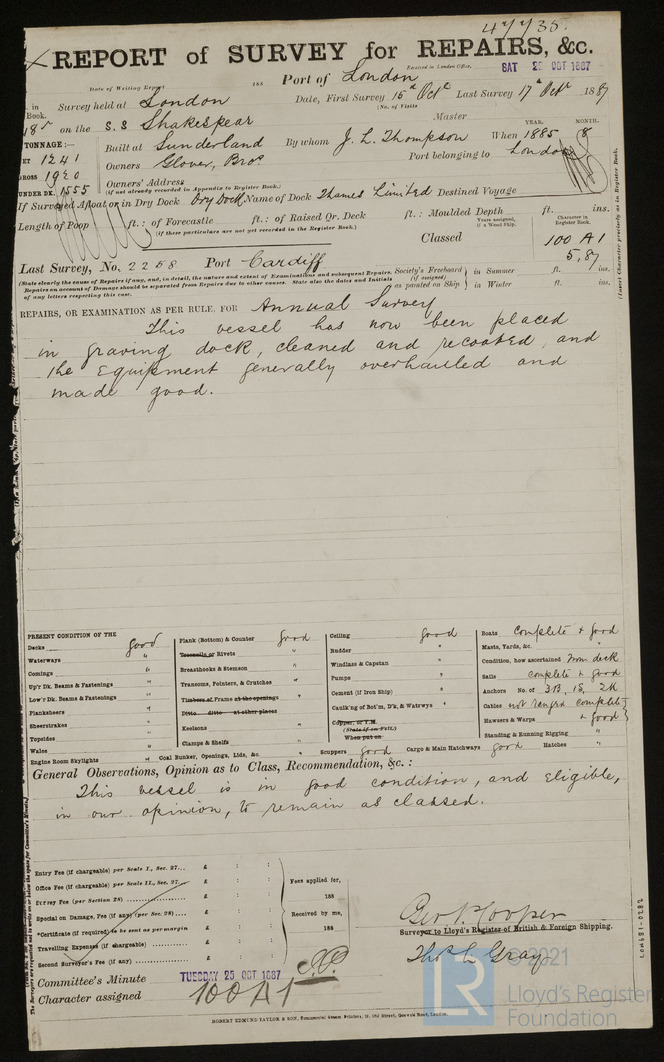 47735.
REPORT of SURVEY for REPAIRS, &c.
Entered in London Office,
SAT 22 OCT 1887
Date of Writing Report 188 Port of London
in Survey held at London Date, First Survey 15th Octr Last Survey 17th Octr 1887
Book. (No. of Visits
on the S.S Shakespear Master
TONNAGE:— Built at Sunderland By whom J. L. Thompson When 1885 8
YEAR. MONTH.
1241 Owners Glover, Bros Port belonging to London
GROSS 1920 Owners' Address
(if not already recorded in Appendix to Register Book.)
UNDER DK. 1555
If Surveyed Afloat or in Dry Dock Dry Dock Name of Dock Thames Limited Destined Voyage
Length of Poop ft.: of Forecastle ft.: of Raised Qr. Deck ft.: Moulded Depth ft. ins.
(If these particulars are not yet recorded in the Register Book.)
Years assigned, if a Wood Ship.
Character in Register Book.
Classed 100 A1
5,87
Last Survey, No. 2258 Port Cardiff
Society's Freeboard (if assigned) as painted on Ship in Summer ft. ins.
in Winter ft. ins.
(State clearly the cause of Repairs if any, and, in detail, the nature and extent of Examinations and subsequent Repairs.
Repairs on account of Damage should be separated from Repairs due to other causes. State also the dates and Initials
of any letters respecting this case.
(Insert Character precisely as in Register Book.
REPAIRS, OR EXAMINATION AS PER RULE. FOR Annual Survey
This vessel has now been placed
in graving dock, cleaned and recoated, and
the Equipment generally overhauled and
made good.
PRESENT CONDITION OF THE
Decks good
Waterways "
Comings "
Up'r Dk. Beams & Fastenings "
Low'r Dk. Beams & Fastenings "
Planksheers "
Sheerstrakes "
Topsides "
Wales "
Engine Room Skylights "
Plank (Bottom) & Counter good
Treenails or Rivets "
Breasthooks & Stemson "
Transoms, Pointers, & Crutches "
Timbers of Frame at the openings "
Ditto ditto at other places
Keelsons "
Clamps & Shelfs "
Coal Bunker, Openings, Lids, &c. "
Ceiling good
Rudder "
Windlass & Capstan "
Pumps "
Cement (if Iron Ship) "
Caulk'ng of Bot'm, D'k, & Waterwys "
Copper, or Y.M.
(State if on Felt.)
When put on
Scuppers good Cargo & Main Hatchways good Hatches "
Boats complete & good
Masts, Yards, &c. "
Condition, how ascertained From deck
Sails complete & good
Anchors No. of 3B, 1S, 2K
Cables not ranged complete
Hawsers & Warps & good
Standing & Running Rigging "
General Observations, Opinion as to Class, Recommendation, &c.:
This vessel is in good condition, and Eligible,
in our opinion, to remain as classed.
Entry Fee (if chargeable) per Scale I., Sec. 27... £ : :
Office Fee (if chargeable) per Scale II., Sec. 27. £ : :
Survey Fee (per Section 28) £ : :
Special on Damage, Fee (if any) (per Sec. 28) £ : :
Certificate (if required) to be sent as per margin £ : :
Travelling Expenses (if chargeable) £ : :
Second Surveyor's Fee (if any) £ : :
Fees applied for,
188
Received by me,
188
Geo. P. Cooper
Surveyor to Lloyd's Register of British & Foreign Shipping.
Thos L. Gray
Committee's Minute TUESDAY 25 OCT 1887
Character assigned 100 A1
ROBERT EDMUND TAYLOR & SON,
LON681-0282
LR
© 2021
Lloyd's Register
Foundation